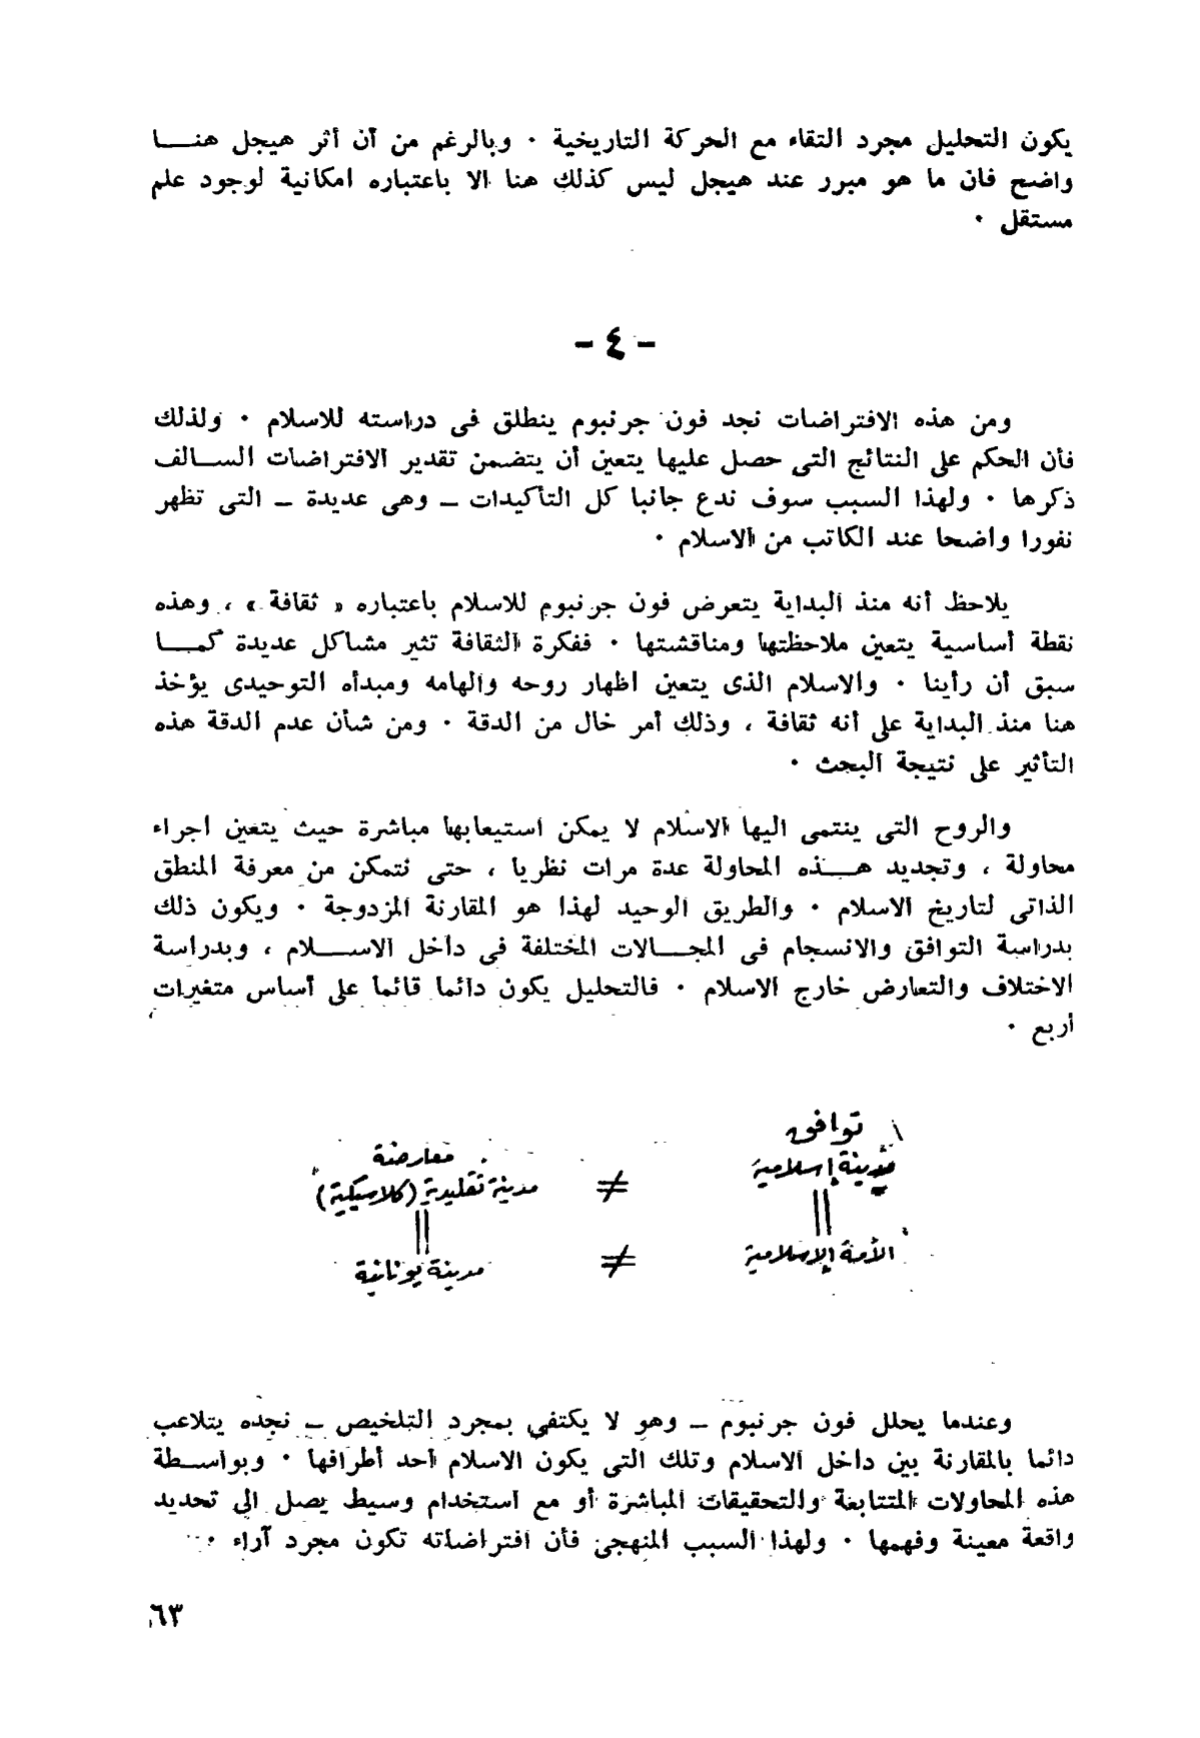 يكون التحليل مجرد التقاء مع الحركة التاريخية ٠ وبالرغم من أن أثر هيجل هنا
واضح فان ما هو مبرر عند هيجل ليس كذلك هنا الا باعتباره امكانية لوجود علم
مستقل ٠
- ٤ -
ومن هذه الافتراضات نجد فون جرنبوم ينطلق فى دراسته للاسلام ٠ ولذلك
فأن الحكم على النتائج التى حصل عليها يتعين أن يتضمن تقدير الافتراضات السالف
ذكرها ٠ ولهذا السبب سوف ندع جانبا كل التأكيدات ــ وهى عديدة ــ التى تظهر
نفورا واضحا عند الكاتب من الاسلام ٠
يلاحظ أنه منذ البداية يتعرض فون جرنبوم للاسلام باعتباره « ثقافة » ، وهذه
نقطة أساسية يتعين ملاحظتها ومناقشتها ٠ ففكرة الثقافة تثير مشاكل عديدة كما
سبق أن رأينا ٠ والاسلام الذى يتعين اظهار روحه والهامه ومبدأه التوحيدى يؤخذ
هنا منذ البداية على أنه ثقافة ، وذلك أمر خال من الدقة ٠ ومن شأن عدم الدقة هذه
التأثير على نتيجة البحث ٠
والروح التى ينتمى اليها الاسلام لا يمكن استيعابها مباشرة حيث يتعين اجراء
محاولة ، وتجديد هذه المحاولة عدة مرات نظريا ، حتى نتمكن من معرفة المنطق
الذاتى لتاريخ الاسلام ٠ والطريق الوحيد لهذا هو المقارنة المزدوجة ٠ ويكون ذلك
بدراسة التوافق والانسجام فى المجالات المختلفة فى داخل الاسلام ، وبدراسة
الاختلاف والتعارض خارج الاسلام ٠ فالتحليل يكون دائما قائما على أساس متغيرات
أربع ٠
توافق معارضة
مدينة إسلامية ≠ مدينة تقليدية (كلاسيكية)
|| ||
الأمة الإسلامية ≠ مدينة يونانية
وعندما يحلل فون جرنبوم ــ وهو لا يكتفي بمجرد التلخيص ــ نجده يتلاعب
دائما بالمقارنة بين داخل الاسلام وتلك التى يكون الاسلام أحد أطرافها ٠ وبواسطة
هذه المحاولات المتتابعة والتحقيقات المباشرة أو مع استخدام وسيط يصل الى تحديد
واقعة معينة وفهمها ٠ ولهذا السبب المنهجى فأن افتراضاته تكون مجرد آراء ٠
٦٣